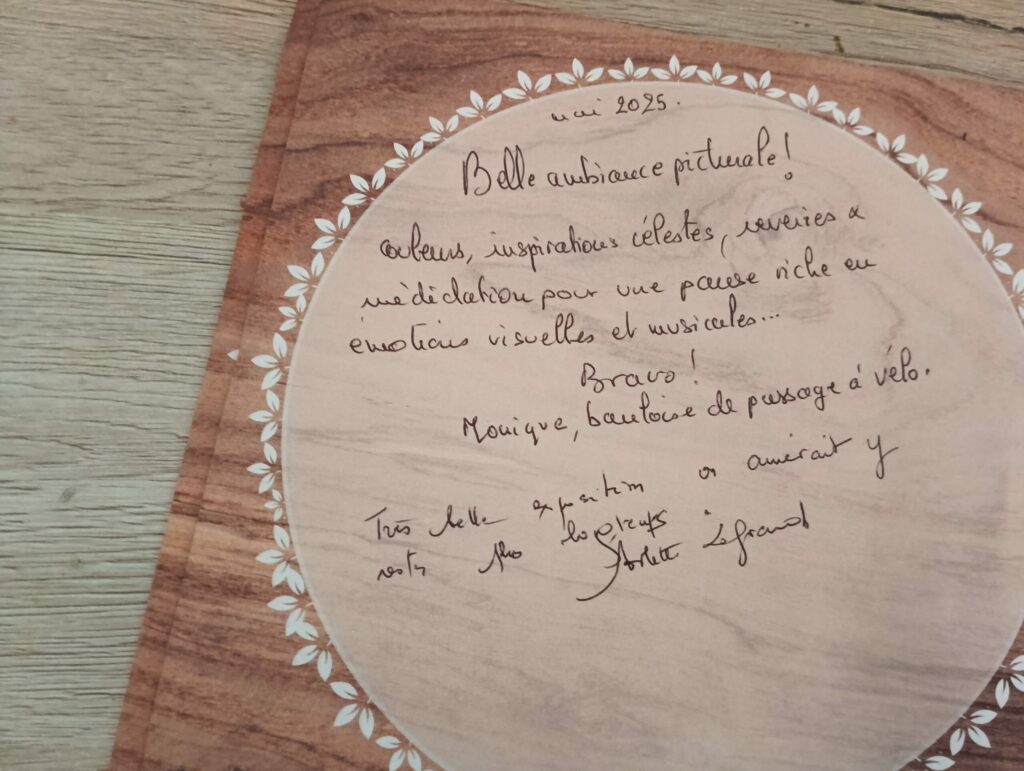 mai 2025.
Belle ambiance picturale!
couleurs, inspirations célestes, reveries &
médidation pour une pause riche en
émotions visuelles et musicales...
Bravo!
Monique, bauloise de passage à vélo.
Très belle exposition on aimerait y
rester plus longtemps
Arlette Legrand